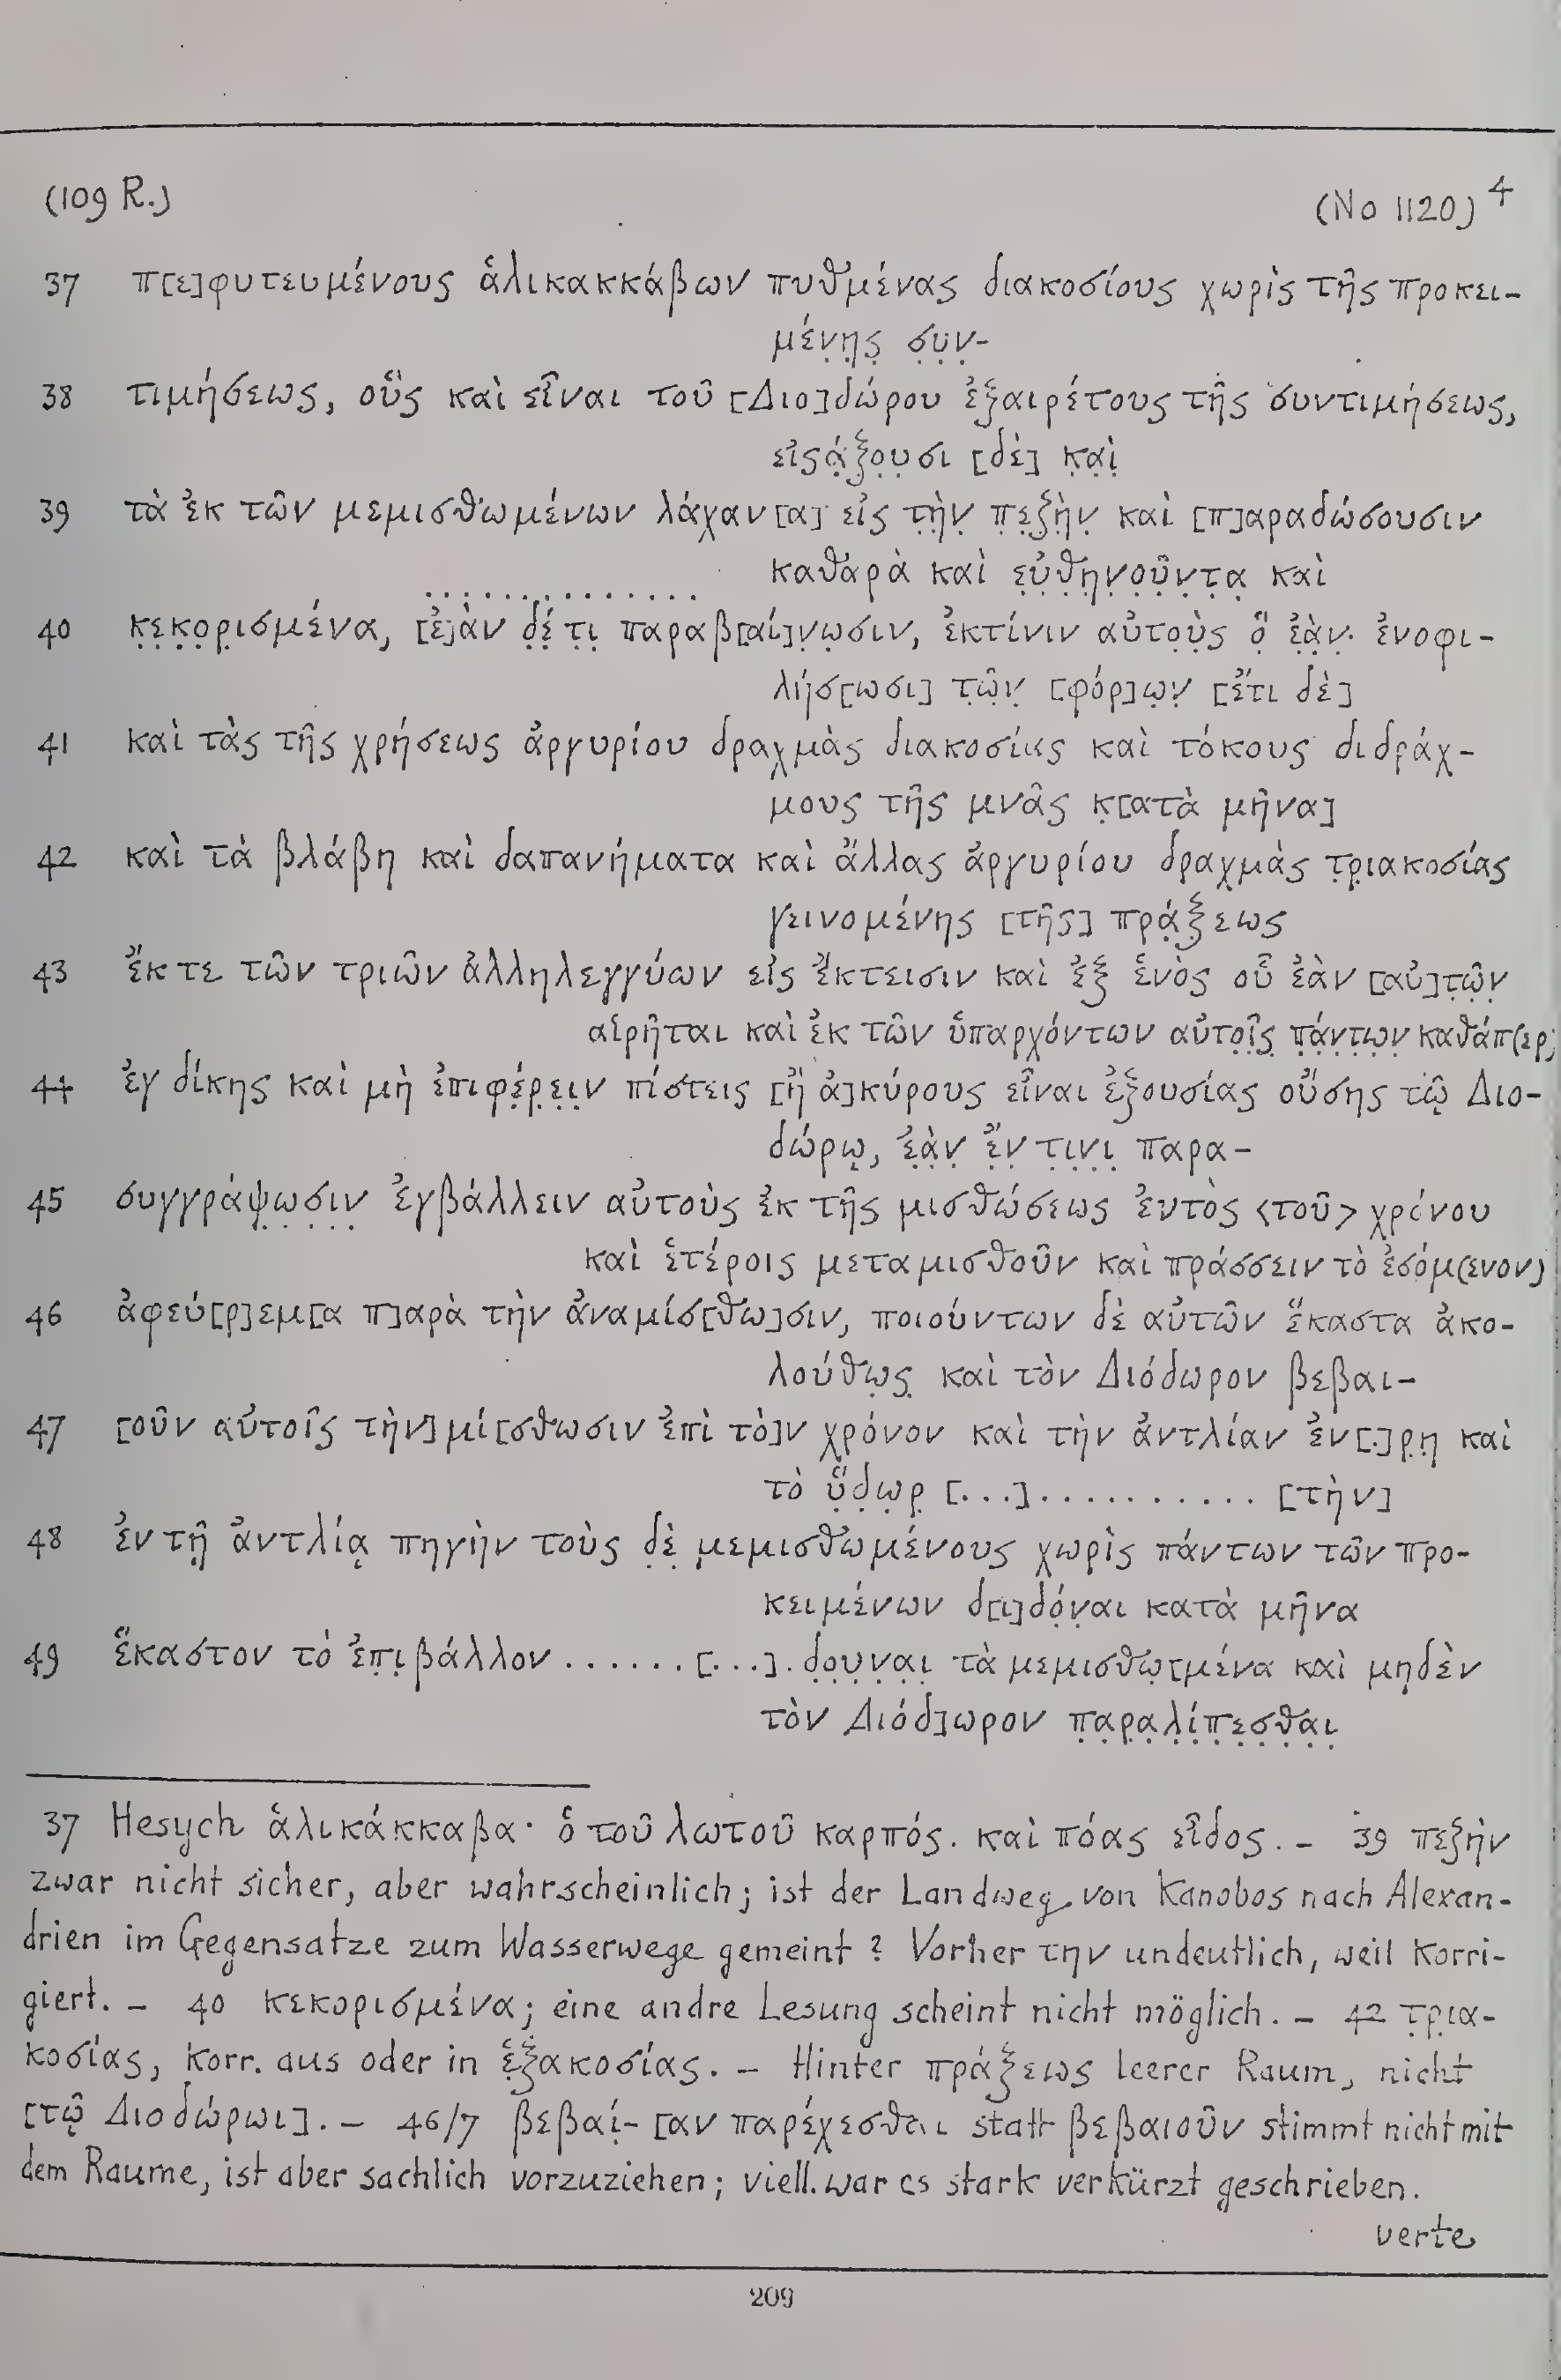 (109 R.)
(No 1120) 4
37 π[ε]φυτευμένους ἁλικακκάβων πυθμένας διακοσίους χωρὶς τῆς προκει-
μέν̣η̣ς̣ σ̣υ̣ν̣-
38 τιμήσεως, οὓς καὶ εἶναι τοῦ [Διο]δώρου ἐξαιρέτους τῆς συντιμήσεως,
εἰςά̣ξ̣ο̣υ̣σι [δὲ] κ̣α̣ὶ̣
39 τὰ ἐκ τῶν μεμισθωμένων λάχαν[α] εἰς τ̣ὴ̣ν̣ π̣ε̣ζ̣ὴ̣ν̣ καὶ [π]αραδώσουσιν
καθαρὰ καὶ ε̣ὐ̣θ̣η̣ν̣ο̣ῦ̣ν̣τ̣α̣ καὶ
40 κ̣ε̣κ̣ο̣ρ̣ισμένα, [ἐ]ὰν δ̣έ̣ τ̣ι̣ παραβ[αί]ν̣ω̣σιν, ἐκτίνιν αὐτο̣ὺ̣ς ὃ̣ ἐ̣ὰ̣ν̣ ἐνοφι-
λήσ[ωσι] τ̣ῶ̣ν̣ [φόρ]ω̣ν̣ [ἔτι δὲ]
41 καὶ τὰς τῆς χρήσεως ἀργυρίου δραχμὰς διακοσίας καὶ τόκους διδράχ-
μους τῆς μνᾶς κ̣[ατὰ μῆνα]
42 καὶ τὰ βλάβη καὶ δαπανήματα καὶ ἄλλας ἀργυρίου δραχμὰς τ̣ρ̣ιακοσίας
γεινομένης [τῆς] πρά̣ξ̣εως
43 ἔκ τε τῶν τριῶν ἀλληλεγγύων εἰς ἔκτεισιν καὶ ἐξ ἑνὸς οὗ ἐὰν [αὐ]τ̣ῶ̣ν̣
αἱρῆται καὶ ἐκ τῶν ὑπαρχόντων αὐτο̣ῖ̣ς̣ π̣ά̣ν̣τ̣ω̣ν̣ καθάπ(ερ)
44 ἐγ δίκης καὶ μὴ ἐπιφέ̣ρ̣ε̣ι̣ν πίστεις [ἢ ἀ]κύρους εἶναι ἐξουσίας οὔσης τῷ Διο-
δώρῳ, ἐ̣ὰ̣ν̣ ἔ̣ν̣ τ̣ι̣ν̣ι̣ παρα-
45 συγγράψ̣ω̣σ̣ι̣ν̣ ἐγβάλλειν αὐτοὺς ἐκ τῆς μισθώσεως ἐντὸς <τοῦ> χρόνου
καὶ ἑτέροις μεταμισθοῦν καὶ πράσσειν τὸ ἐσόμ(ενον)
46 ἀφεύ[ρ]εμ[α π]αρὰ τὴν ἀναμίσ[θω]σιν, ποιούντων δὲ αὐτῶν ἕκαστα ἀκο-
λούθω̣ς̣ καὶ τὸν Διόδωρον βεβαι-
47 [οῦν αὐτοῖς τὴν] μί[σθωσιν ἐπὶ τὸ]ν χρόνον καὶ τὴν ἀντλίαν ἐν[.]ρ̣η̣ καὶ
τὸ ὕ̣δ̣ω̣ρ̣ [...].......... [τὴν]
48 ἐν τῇ ἀντλίᾳ πηγὴν τοὺς δ̣ὲ̣ μ̣εμισθωμένους χωρὶς πάντων τῶν προ-
κειμένων δ[ι]δό̣ν̣αι κατὰ μῆνα
49 ἕκαστον τὸ ἐπ̣ι̣βάλλον ......[...]. δ̣ο̣υ̣ν̣α̣ι̣ τὰ μεμισθω̣[μένα καὶ μηδὲν
τὸν Διόδ]ωρον π̣α̣ρ̣α̣λ̣ί̣π̣ε̣σ̣θ̣α̣ι̣
37 Hesych ἁλικάκκαβα· ὁ τοῦ λωτοῦ καρπός. καὶ πόας εἶδος. – 39 πεζὴν
zwar nicht sicher, aber wahrscheinlich; ist der Landweg von Kanobos nach Alexan-
drien im Gegensatze zum Wasserwege gemeint? Vorher την undeutlich, weil korri-
giert. – 40 κεκορισμένα; eine andre Lesung scheint nicht möglich. – 42 τ̣ρ̣ια-
κοσίας, korr. aus oder in ἑ̣ξακοσίας. – Hinter πράξεως leerer Raum, nicht
[τῷ Διοδώρωι]. – 46/7 βεβαί̣-[αν παρέχεσθαι statt βεβαιοῦν stimmt nicht mit
dem Raume, ist aber sachlich vorzuziehen; viell. war es stark verkürzt geschrieben.
verte
209